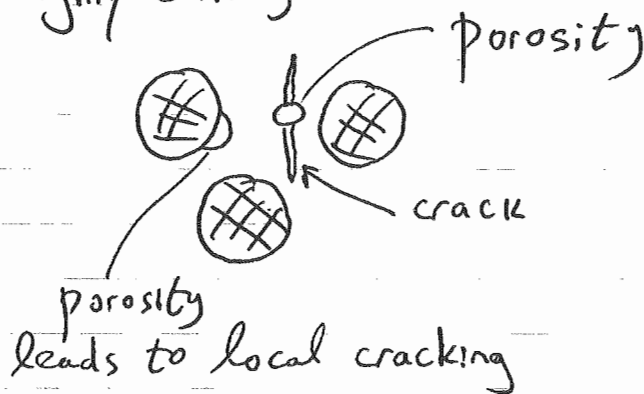 porosity
crack
porosity
leads to local cracking